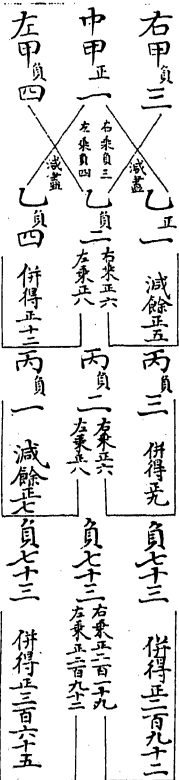 右甲負三
乙正一
減餘正五
丙負三
併得正九
負七十三
併得正二百九十二
中甲正一
右乘負三
左乘負四
減盡
減盡
乙負二
右乘正六
左乘正八
丙負二
右乘正六
左乘正八
負七十三
右乘正二百一十九
左乘正二百九十二
左甲負四
乙負四
併得正十二
丙負一
減餘正七
負七十三
併得正三百六十五